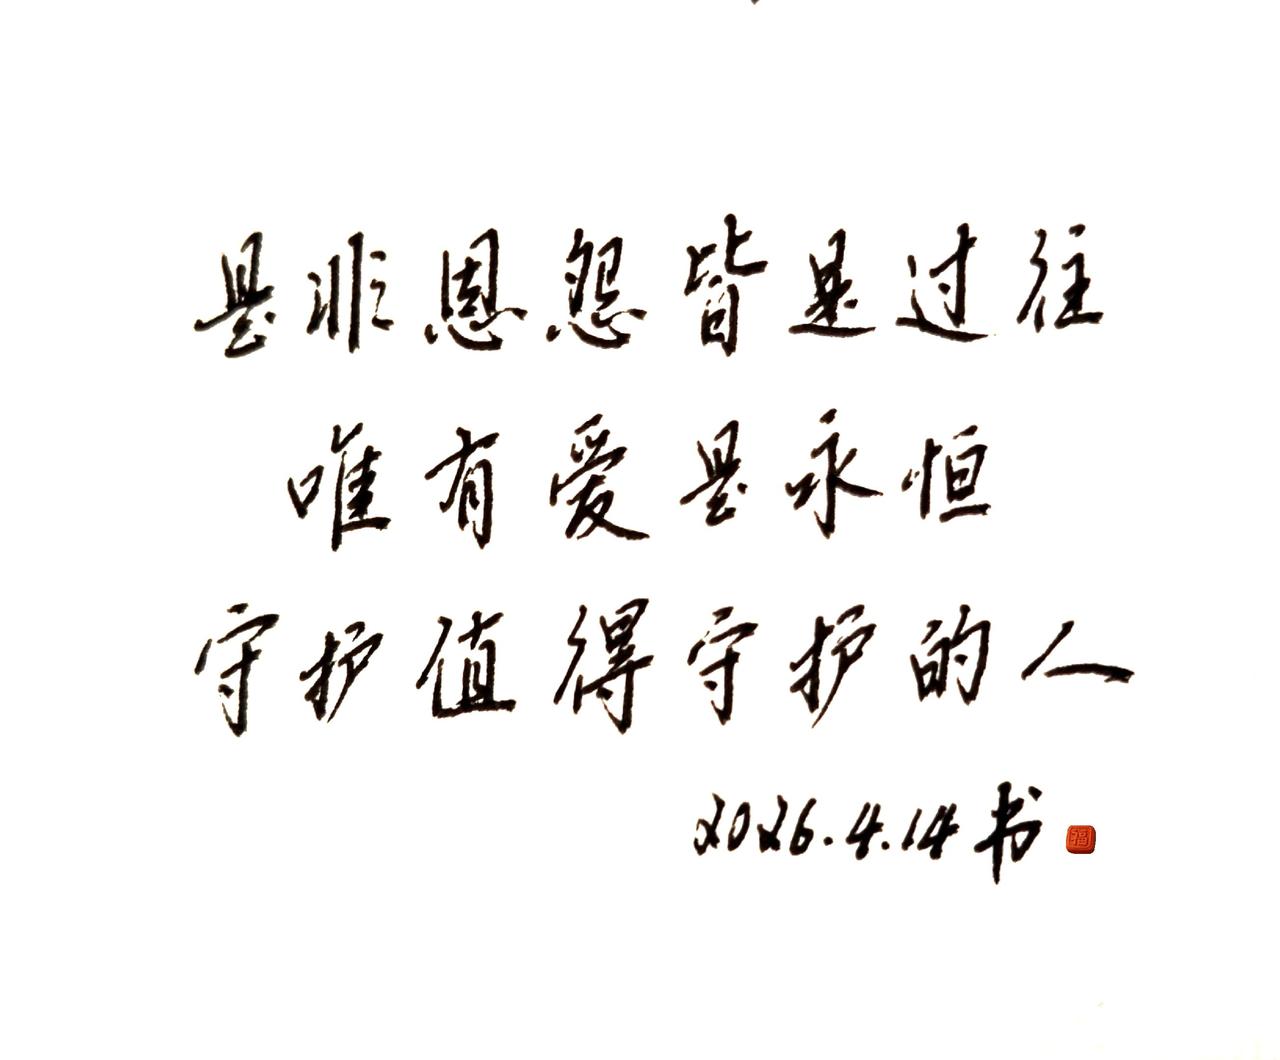 是非恩怨皆是过往
唯有爱是永恒
守护值得守护的人
2026.4.14书
福